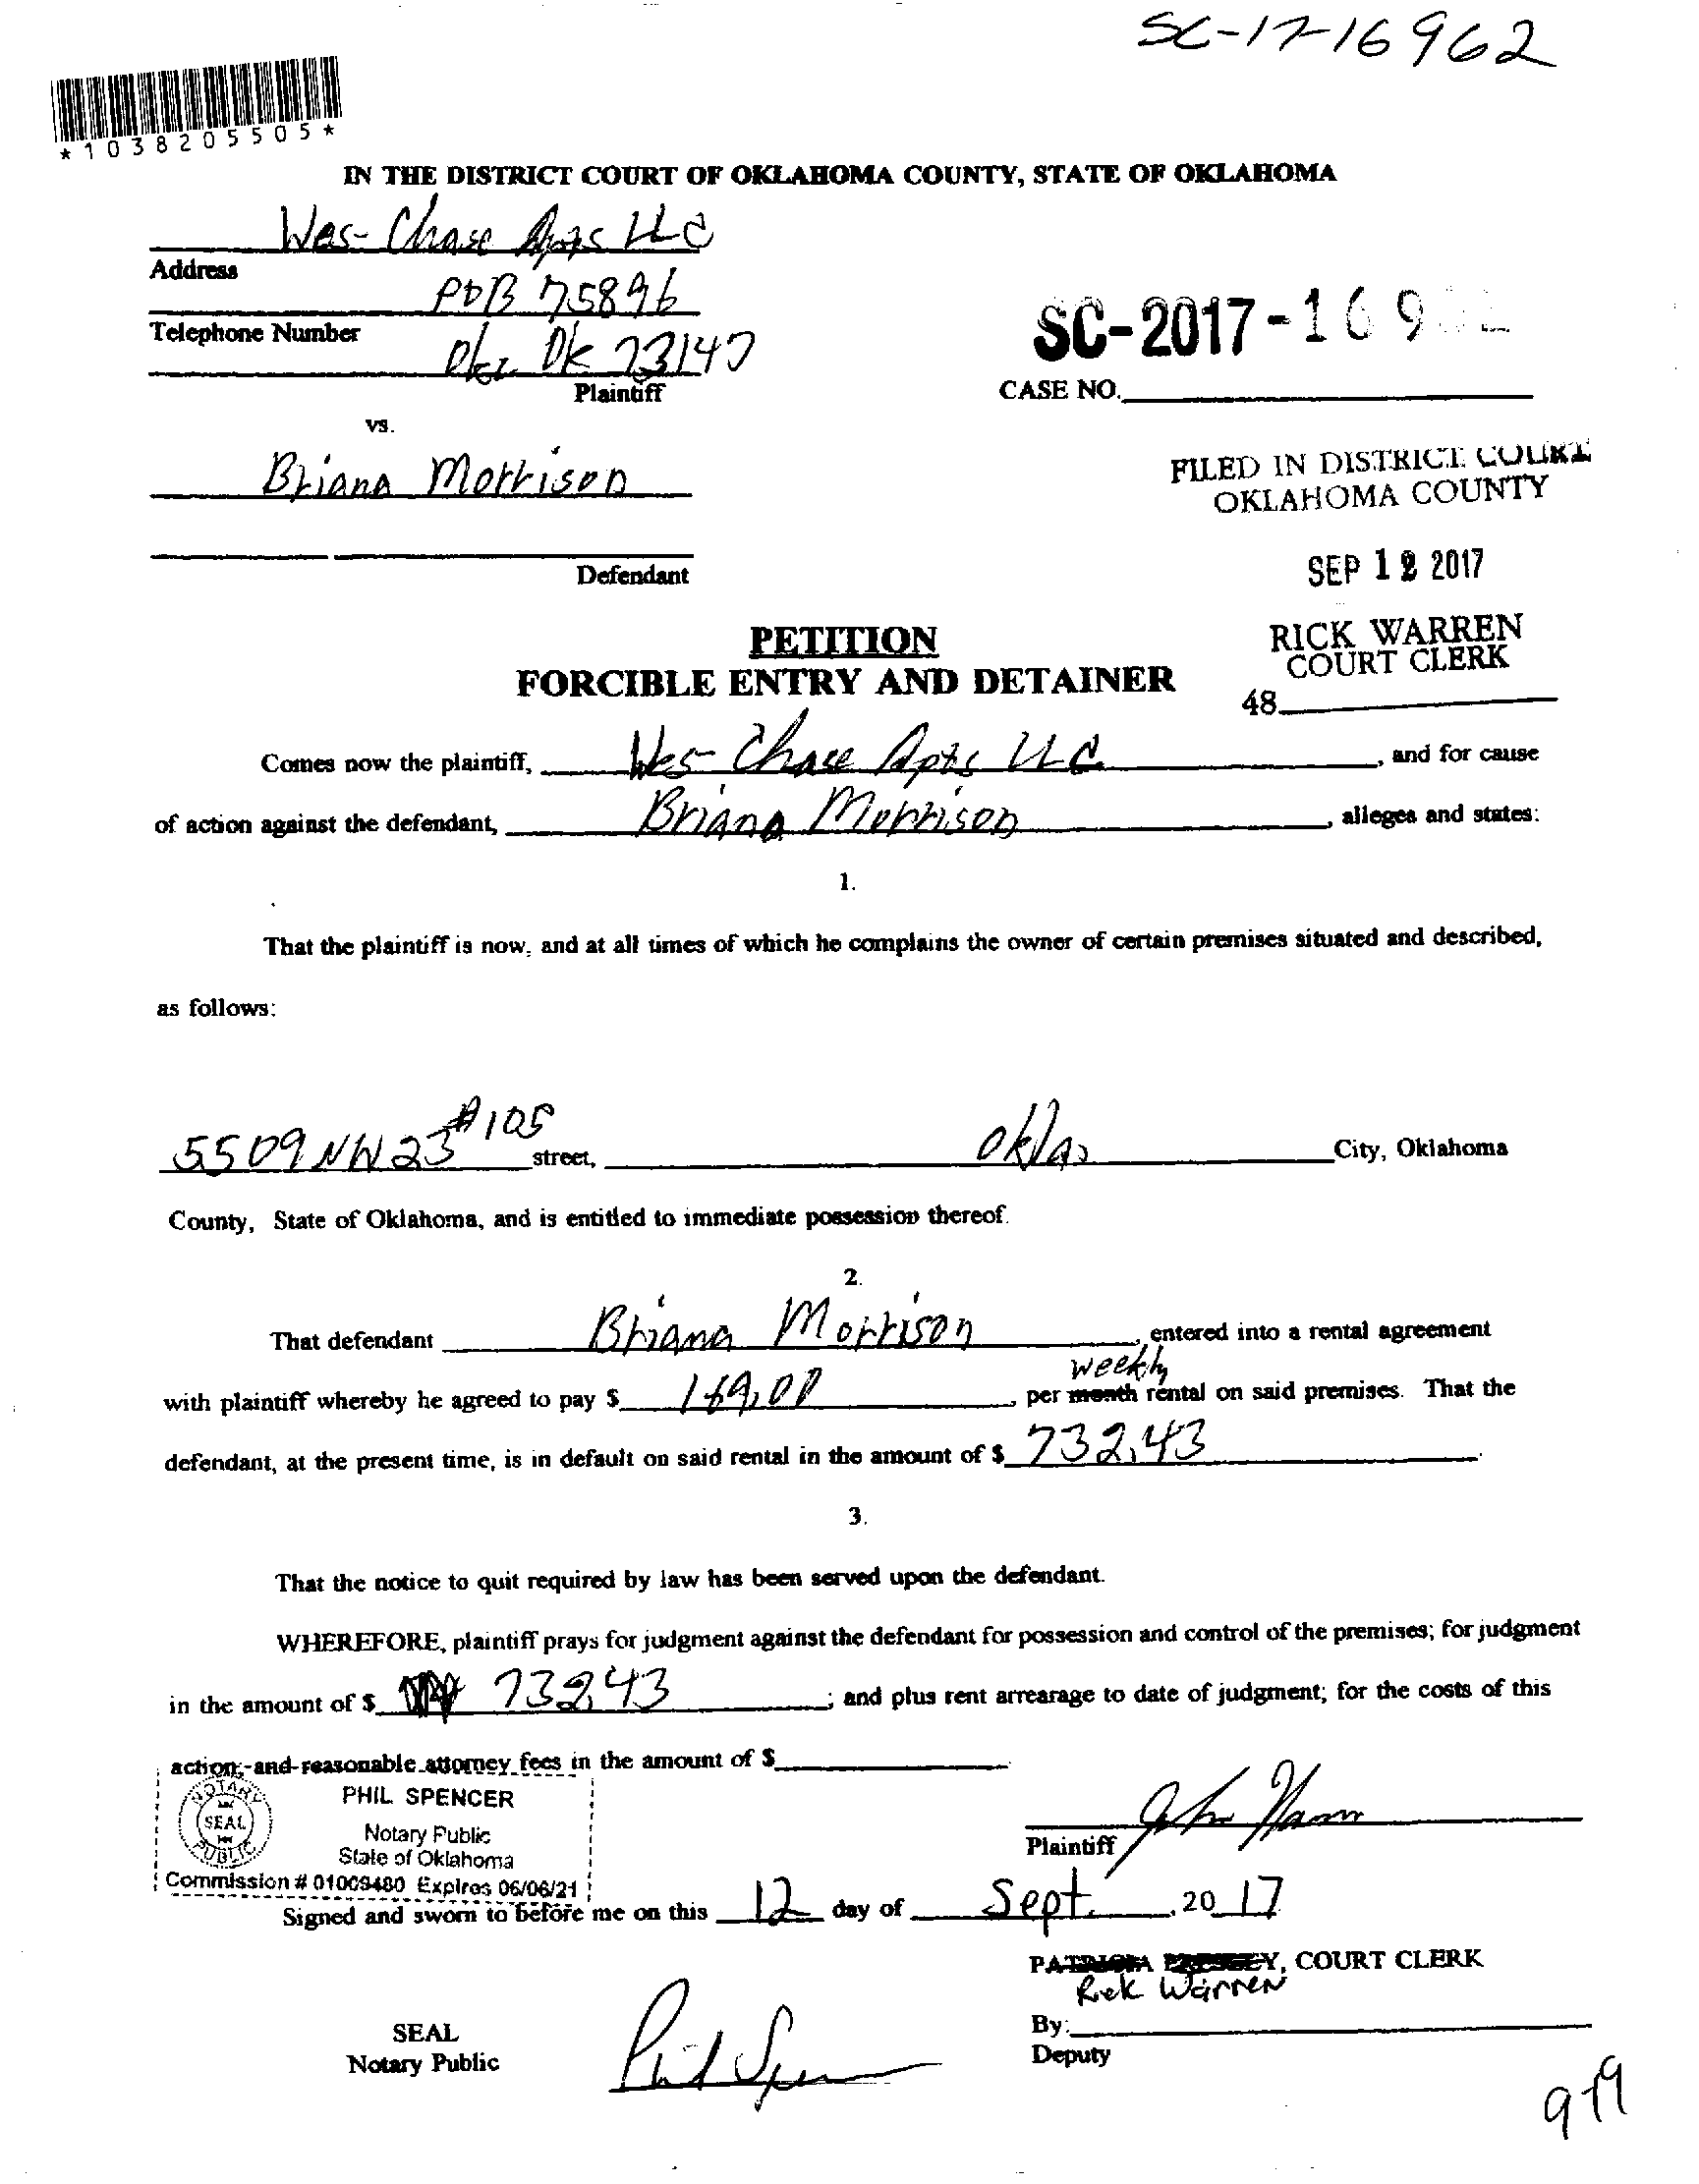 SC-17-16962
*1038205505*
IN THE DISTRICT COURT OF OKLAHOMA COUNTY, STATE OF OKLAHOMA
Wes-Chase Apts LLC
Address
POB 75896
Telephone Number
Okc Ok 73147
Plaintiff
SC-2017-169
CASE NO.
vs.
Briana Morrison
FILED IN DISTRICT COURT
OKLAHOMA COUNTY
Defendant
SEP 12 2017
PETITION
RICK WARREN
COURT CLERK
FORCIBLE ENTRY AND DETAINER
48
Comes now the plaintiff, Wes-Chase Apts LLC, and for cause
of action against the defendant, Briana Morrison, alleges and states:
1.
That the plaintiff is now, and at all times of which he complains the owner of certain premises situated and described,
as follows:
5509 NW 23 #105 street, Okla City, Oklahoma
County, State of Oklahoma, and is entitled to immediate possession thereof.
2.
That defendant Briana Morrison, entered into a rental agreement
weekly
with plaintiff whereby he agreed to pay $ 169.00, per month rental on said premises. That the
defendant, at the present time, is in default on said rental in the amount of $ 732.43.
3.
That the notice to quit required by law has been served upon the defendant.
WHEREFORE, plaintiff prays for judgment against the defendant for possession and control of the premises; for judgment
in the amount of $ 732.43; and plus rent arrearage to date of judgment; for the costs of this
action; and reasonable attorney fees in the amount of $
NOTARY PUBLIC
SEAL
PHIL SPENCER
Notary Public
State of Oklahoma
Commission # 01009480 Expires 06/06/21
Plaintiff
Signed and sworn to before me on this 12 day of Sept., 2017
PATRICIA PRESLEY, COURT CLERK
Rick Warren
By:
Deputy
SEAL
Notary Public
Phil Spencer
9-19